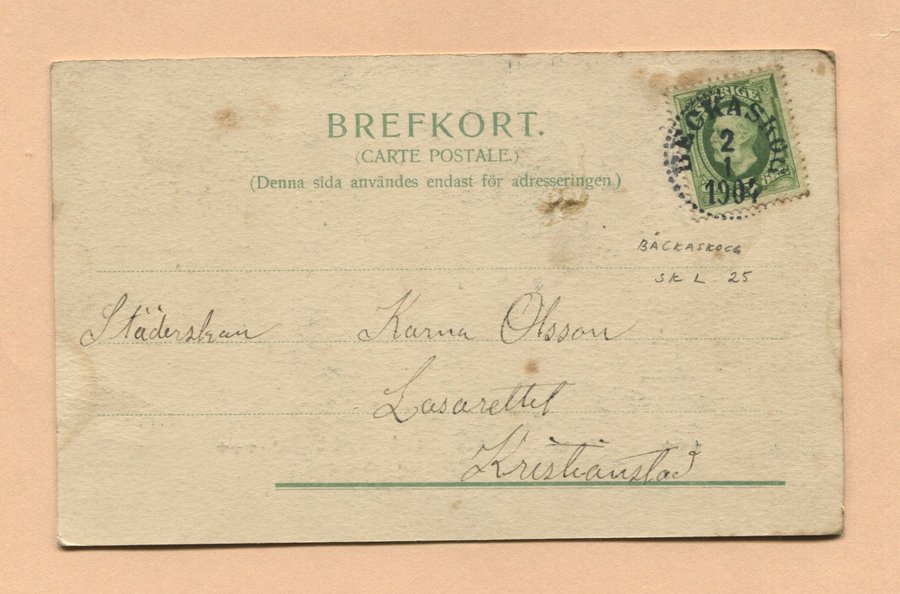 BREFKORT.
(CARTE POSTALE.)
(Denna sida användes endast för adresseringen.)
SVERIGE
BECKASKOG
2
1
1904
BÄCKASKOG
SK L 25
Städerskan Karna Olsson
Lasarettet
Kristianstad